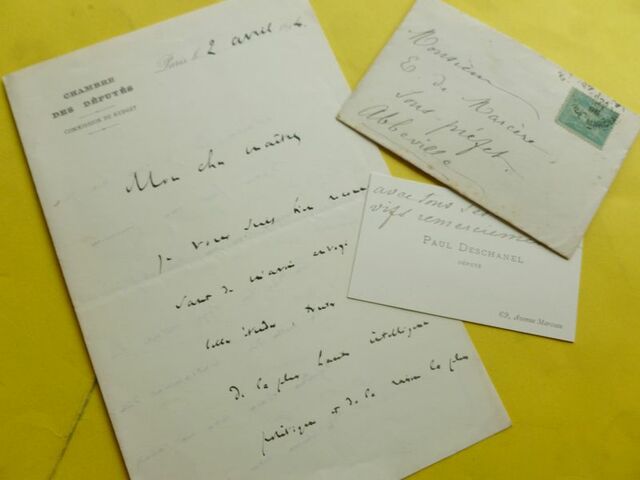 CHAMBRE
DES DÉPUTÉS
COMMISSION DU BUDGET
Paris le 2 avril
Mon cher maître,
Je vous suis bien
de m'avoir envoyé
cette étude, toute
de la plus haute intelligence
politique et de la raison la plus
Monsieur
E. de Marcère
Sous-préfet.
Abbeville
avec tous ses
vifs remerciements
PAUL DESCHANEL
DÉPUTÉ
69, Avenue Marceau